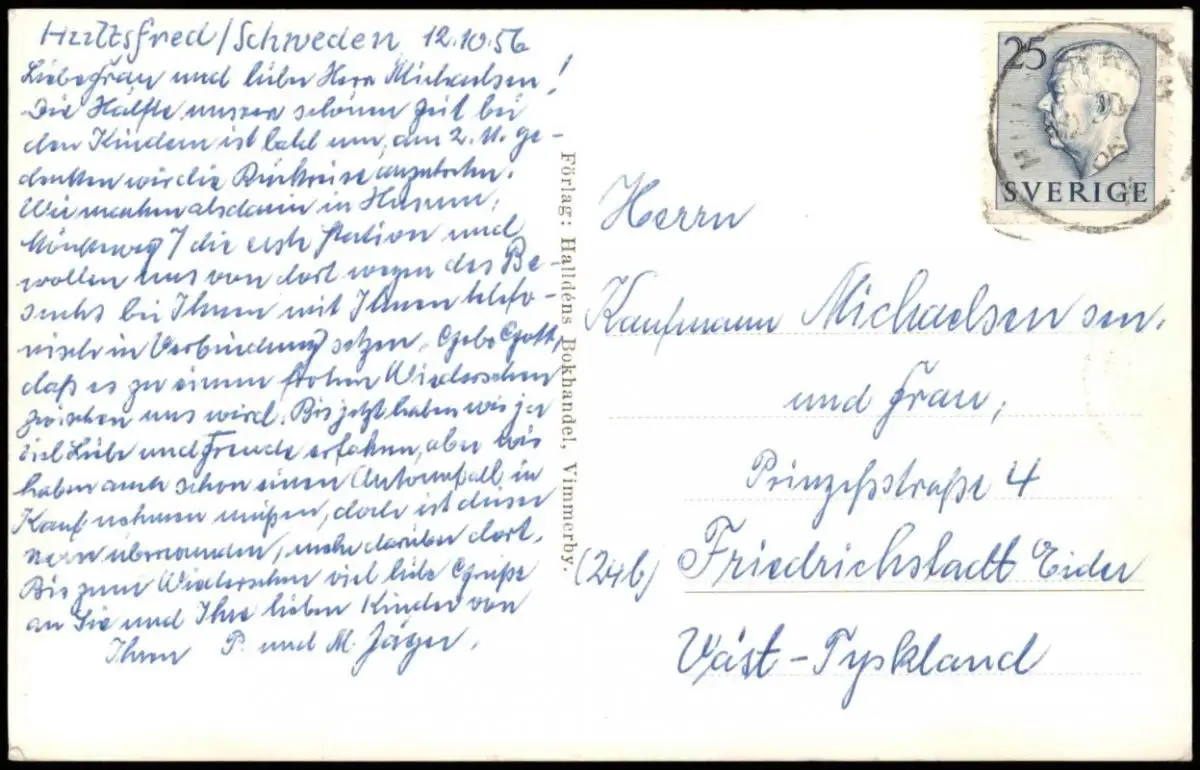 Hultsfred/Schweden 12.10.56
Liebe Frau und lieber Herr Michaelsen!
Die Hälfte unserer schönen Zeit bei
den Kindern ist bald um, am 2.11. ge-
denken wir die Rückreise anzutreten.
Wir machen alsdann in Husum,
7 die erste Station und
wollen uns von dort wegen des Be-
suchs bei Ihnen mit Ihnen telefo-
nisch in Verbindung setzen. Gebe Gott,
daß es zu einem frohen Wiedersehen
zwischen uns wird. Bis jetzt haben wir ja
viel Liebe und Freude erfahren, aber wir
haben auch schon einen Autounfall in
Kauf nehmen müßen, doch ist dieser
nun überwunden, mehr darüber dort.
Bis zum Wiedersehen viel liebe Grüße
an Sie und Ihre lieben Kinder von
Ihren P. und M. Jäger.
Förlag: Halldéns Bokhandel, Vimmerby.
25
SVERIGE
Herrn
Kaufmann Michaelsen sen.
und Frau,
Prinzeßstraße 4
(24b) Friedrichstadt Eider
Väst-Tyskland